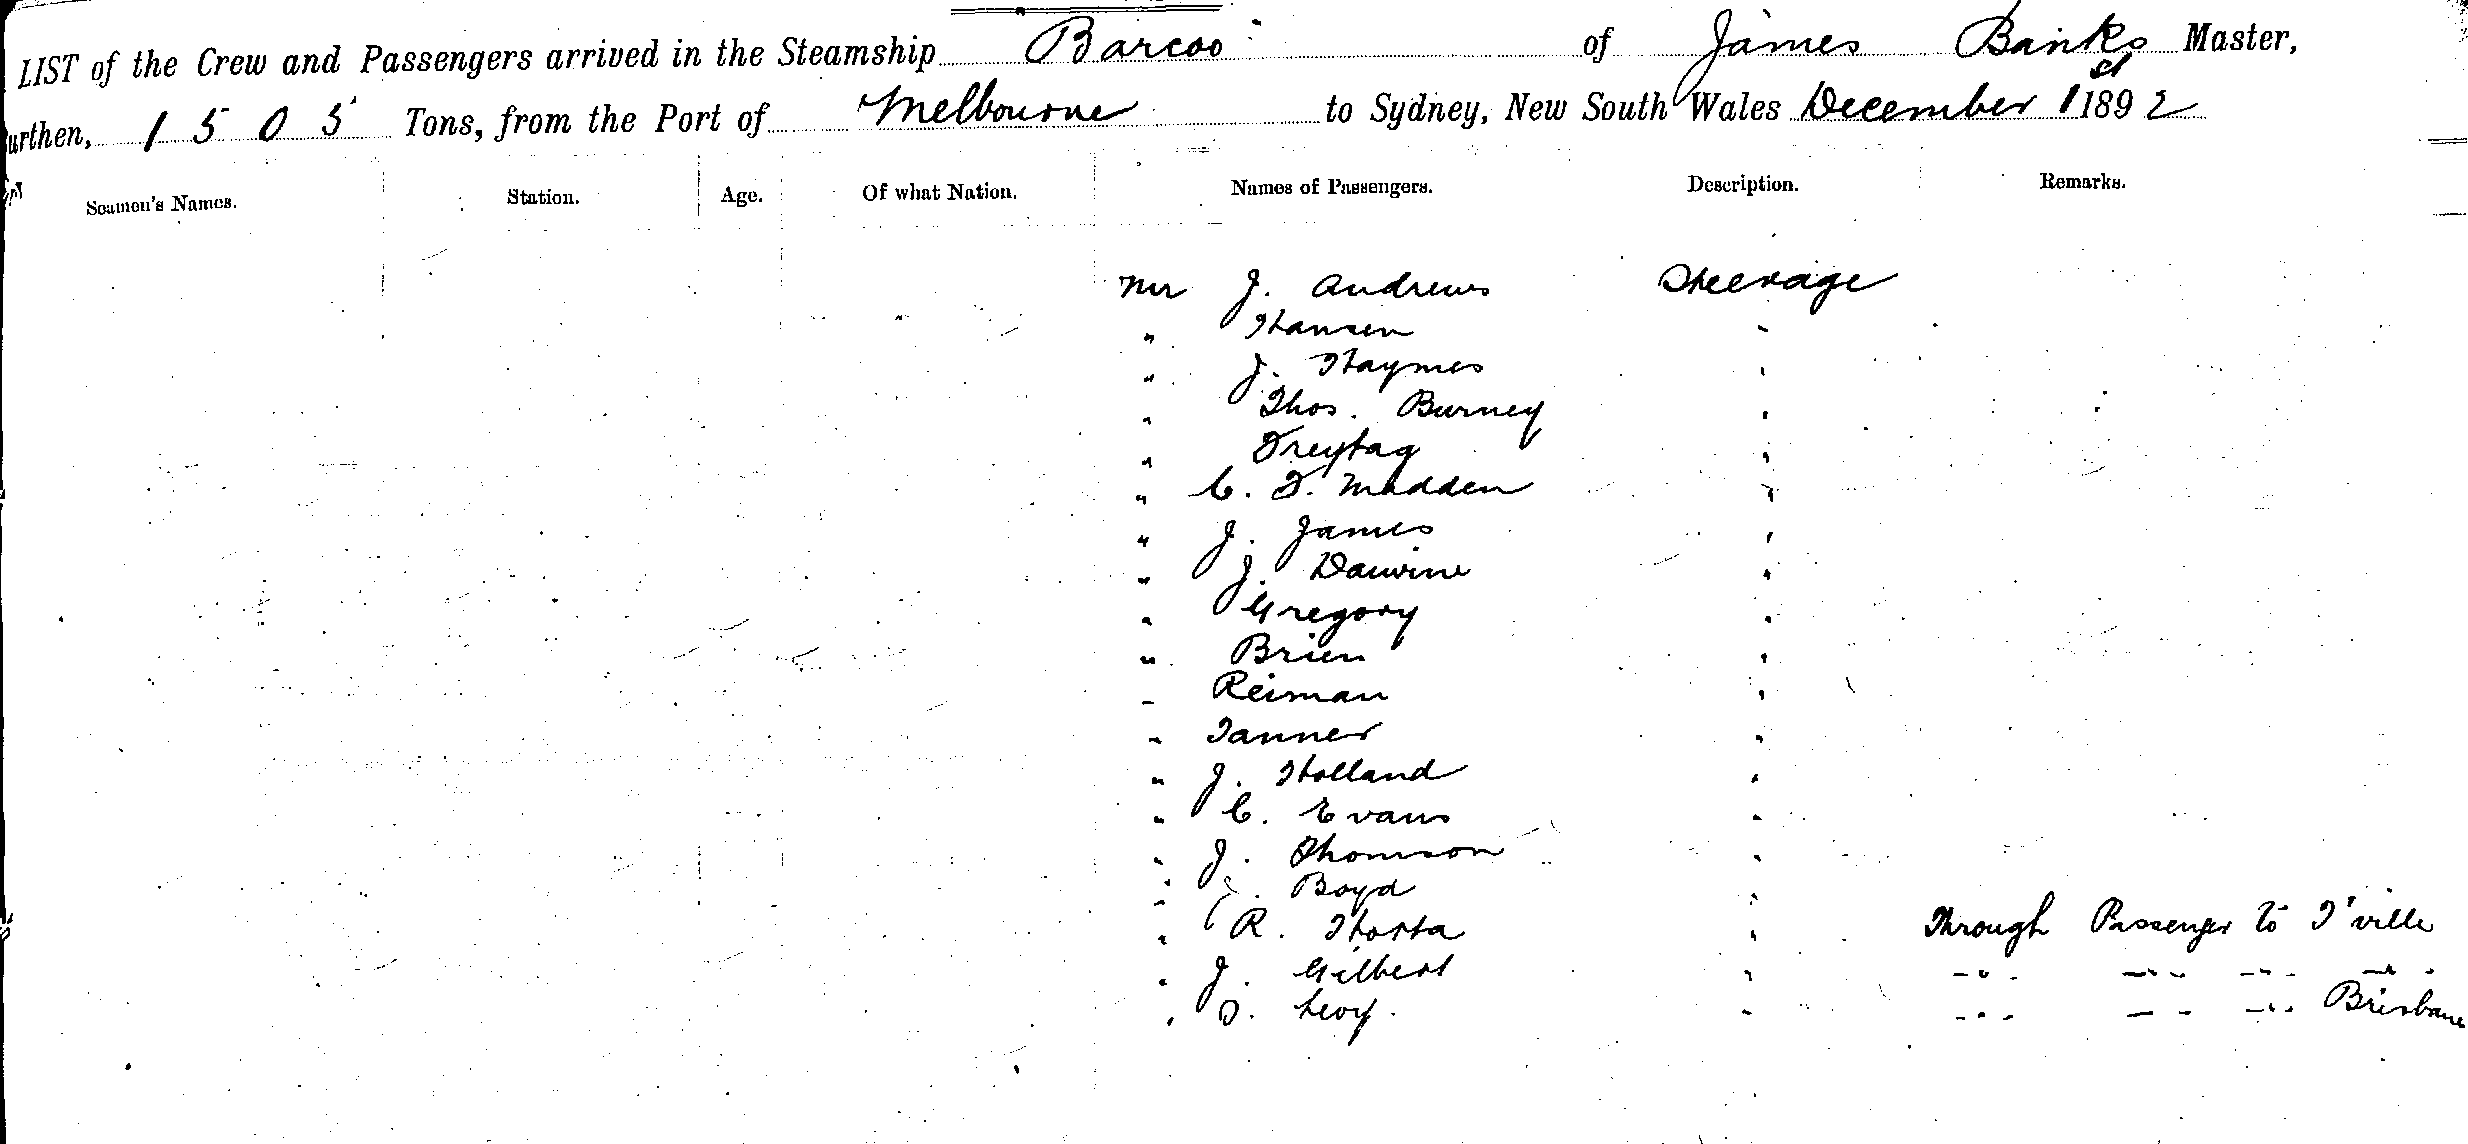 LIST of the Crew and Passengers arrived in the Steamship Barcoo of James Banks Master,
urthen, 1505 Tons, from the Port of Melbourne to Sydney, New South Wales December 1st 1892
Seamen's Names. Station. Age. Of what Nation. Names of Passengers. Description. Remarks.
Mr J. Andrews Steerage
" Hansen "
" J. Haymes "
" Thos. Burney "
" Freytag "
" C. F. Madden "
" J. James "
" J. "
" Gregory "
" Brien "
" Reiman "
" Tanner "
" J. Holland "
" C. Evans "
" J. Thomson "
" J. Boyd "
" R. " Through Passenger to T'ville
" J. Gilbert " " " " "
" Levy. " " " " Brisbane